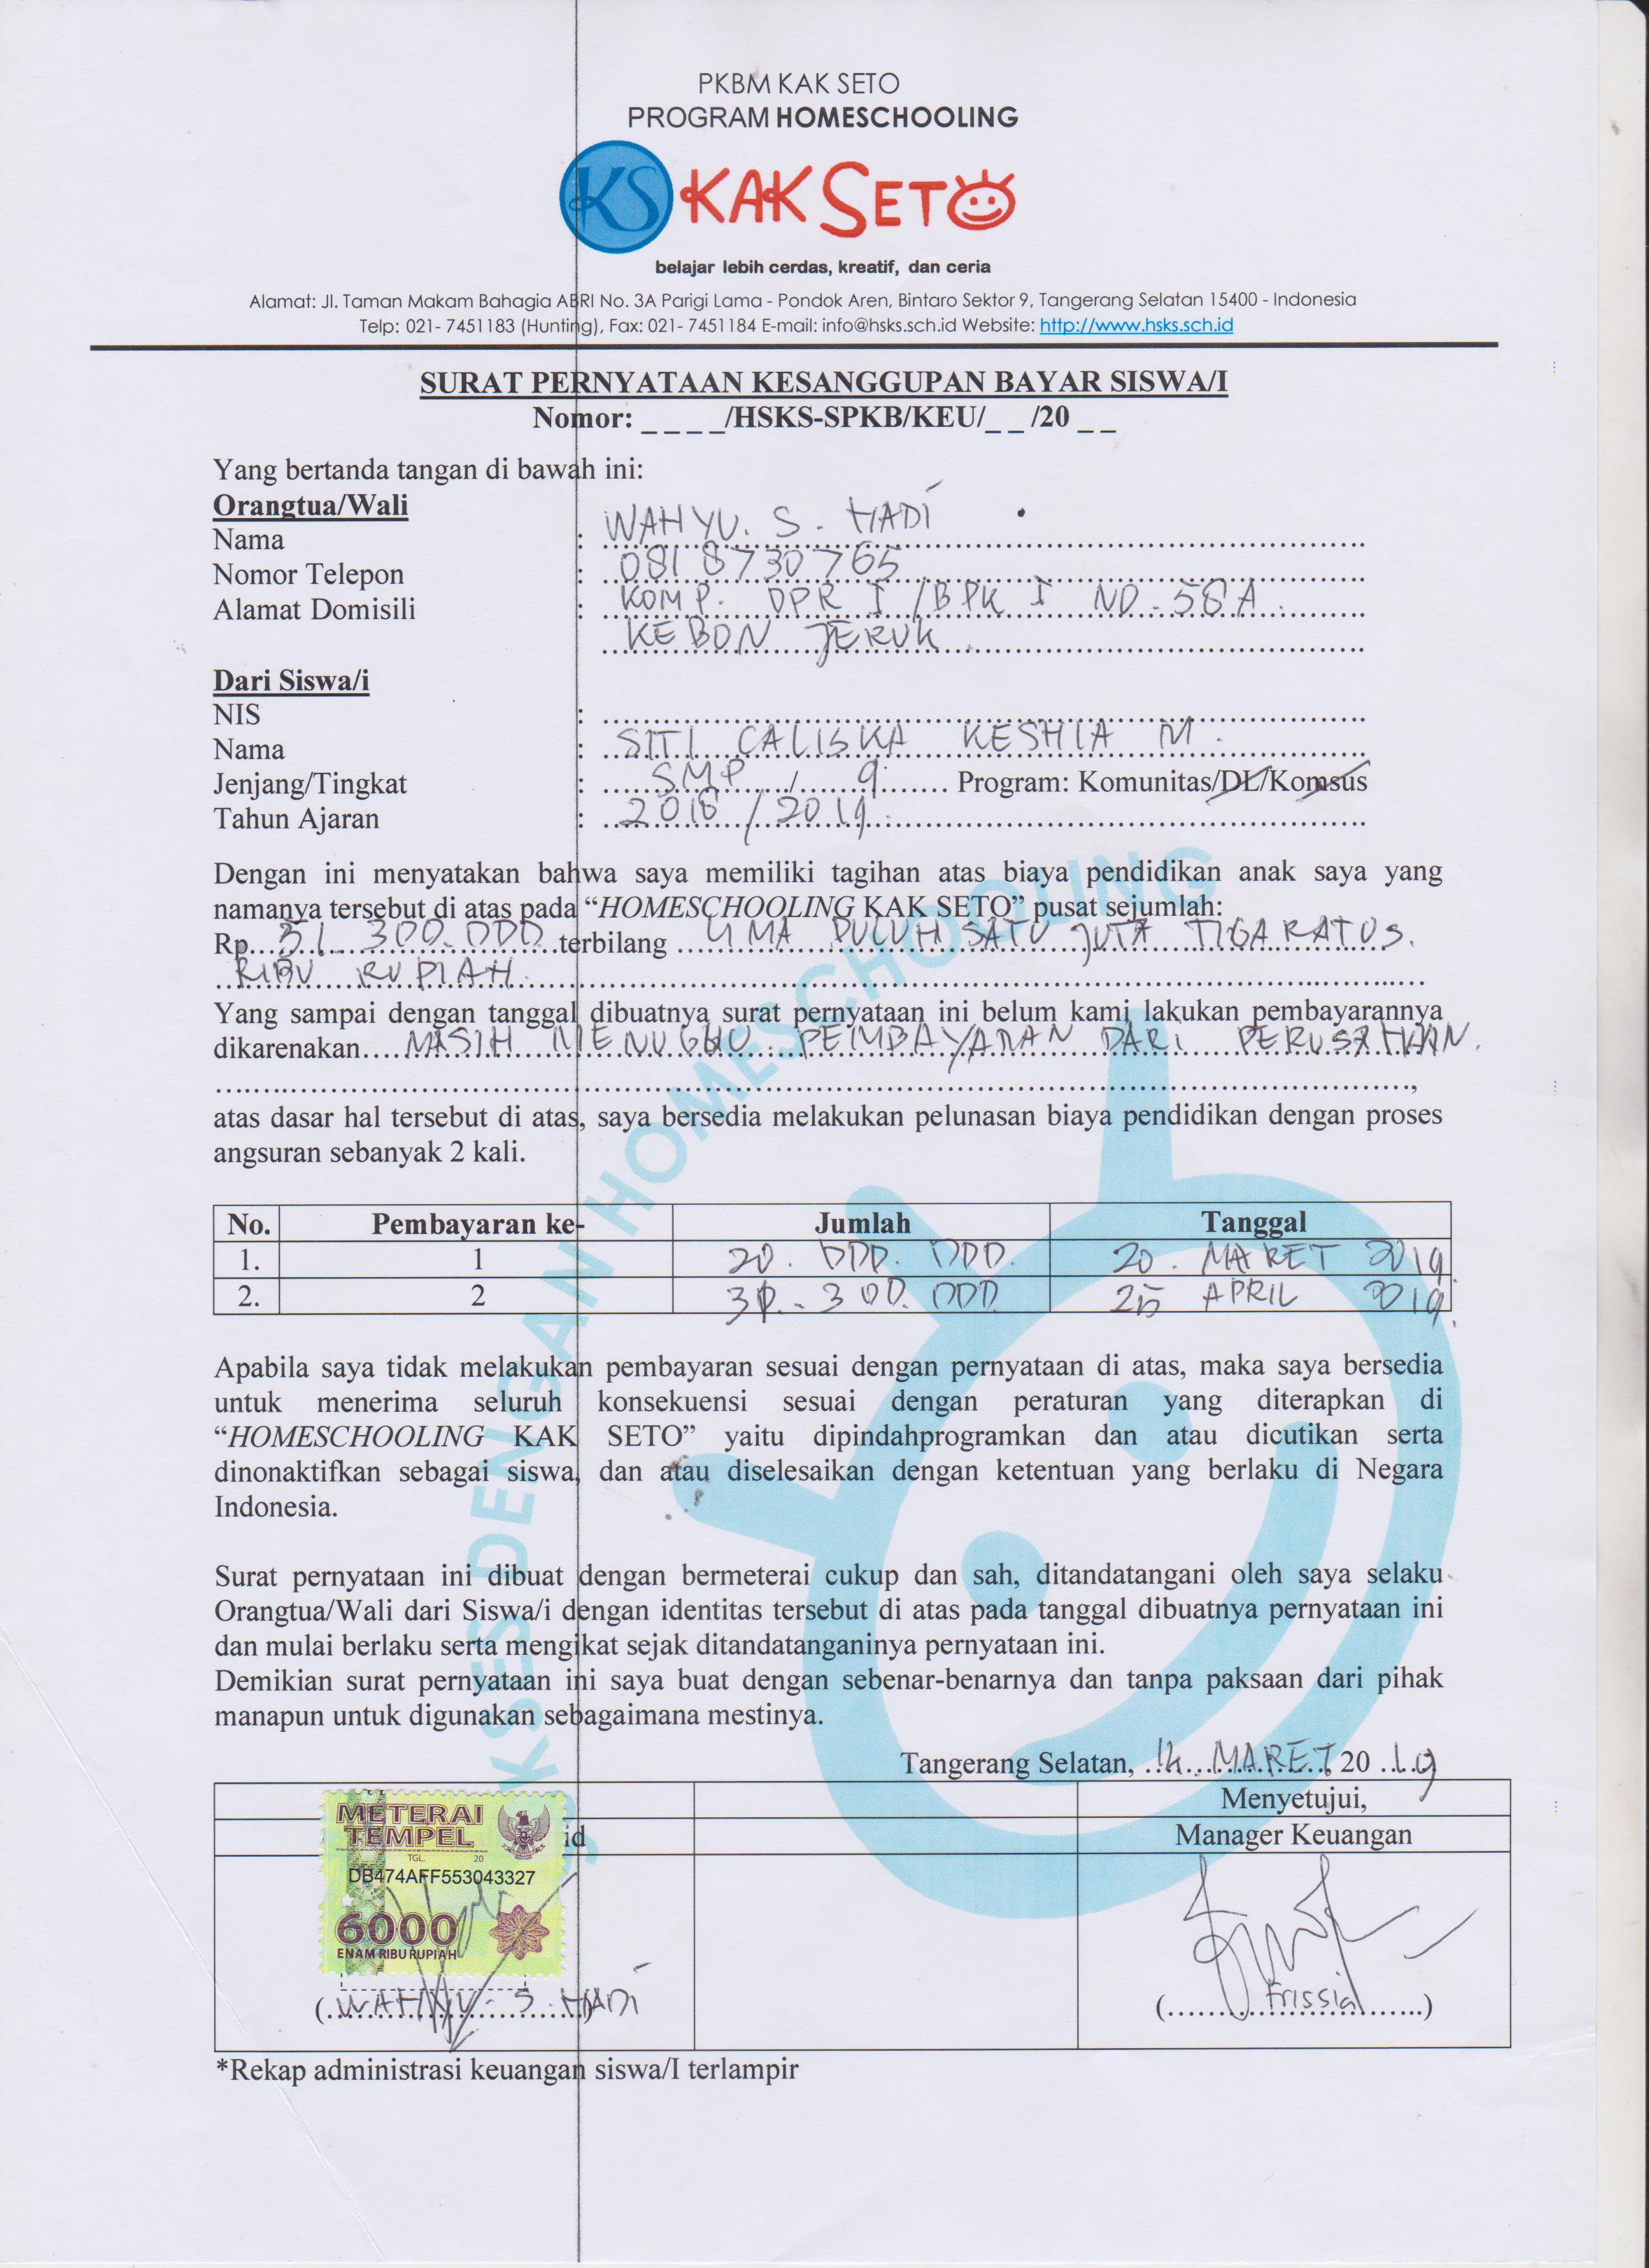 PKBM KAK SETO
PROGRAM HOMESCHOOLING
KS KAK SETO
belajar lebih cerdas, kreatif, dan ceria
Alamat: Jl. Taman Makam Bahagia ABRI No. 3A Parigi Lama - Pondok Aren, Bintaro Sektor 9, Tangerang Selatan 15400 - Indonesia
Telp: 021- 7451183 (Hunting), Fax: 021- 7451184 E-mail: info@hsks.sch.id Website: http://www.hsks.sch.id
SURAT PERNYATAAN KESANGGUPAN BAYAR SISWA/I
Nomor: _ _ _ _/HSKS-SPKB/KEU/_ _ /20 _ _
Yang bertanda tangan di bawah ini:
Orangtua/Wali
Nama : WAHYU. S. HADI
Nomor Telepon : 0818730765
Alamat Domisili : KOMP. DPR I /BPK I NO. 58A
KEBON JERUK
Dari Siswa/i
NIS :
Nama : SITI CALISKA KESHIA M.
Jenjang/Tingkat : SMP / 9 Program: Komunitas/DL/Komsus
Tahun Ajaran : 2018 / 2019
Dengan ini menyatakan bahwa saya memiliki tagihan atas biaya pendidikan anak saya yang
namanya tersebut di atas pada “HOMESCHOOLING KAK SETO” pusat sejumlah:
Rp. 51.300.000 terbilang LIMA PULUH SATU JUTA TIGA RATUS
RIBU RUPIAH.
Yang sampai dengan tanggal dibuatnya surat pernyataan ini belum kami lakukan pembayarannya
dikarenakan MASIH MENUGGU PEMBAYARAN DARI PERUSAHAAN.
atas dasar hal tersebut di atas, saya bersedia melakukan pelunasan biaya pendidikan dengan proses
angsuran sebanyak 2 kali.
No. Pembayaran ke- Jumlah Tanggal
1. 1 20.000.000. 20. MARET 2019
2. 2 31.300.000 25 APRIL 2019.
Apabila saya tidak melakukan pembayaran sesuai dengan pernyataan di atas, maka saya bersedia
untuk menerima seluruh konsekuensi sesuai dengan peraturan yang diterapkan di
“HOMESCHOOLING KAK SETO” yaitu dipindahprogramkan dan atau dicutikan serta
dinonaktifkan sebagai siswa, dan atau diselesaikan dengan ketentuan yang berlaku di Negara
Indonesia.
Surat pernyataan ini dibuat dengan bermeterai cukup dan sah, ditandatangani oleh saya selaku
Orangtua/Wali dari Siswa/i dengan identitas tersebut di atas pada tanggal dibuatnya pernyataan ini
dan mulai berlaku serta mengikat sejak ditandatanganinya pernyataan ini.
Demikian surat pernyataan ini saya buat dengan sebenar-benarnya dan tanpa paksaan dari pihak
manapun untuk digunakan sebagaimana mestinya.
Tangerang Selatan, 14 MARET 20 19
Menyetujui,
id Manager Keuangan
METERAI
TEMPEL
TGL. 20
DB474AFF553043327
6000
ENAM RIBU RUPIAH
(WAHYU. S. HADI) (Frissia)
*Rekap administrasi keuangan siswa/I terlampir
DENGAN HOMESCHOOLING